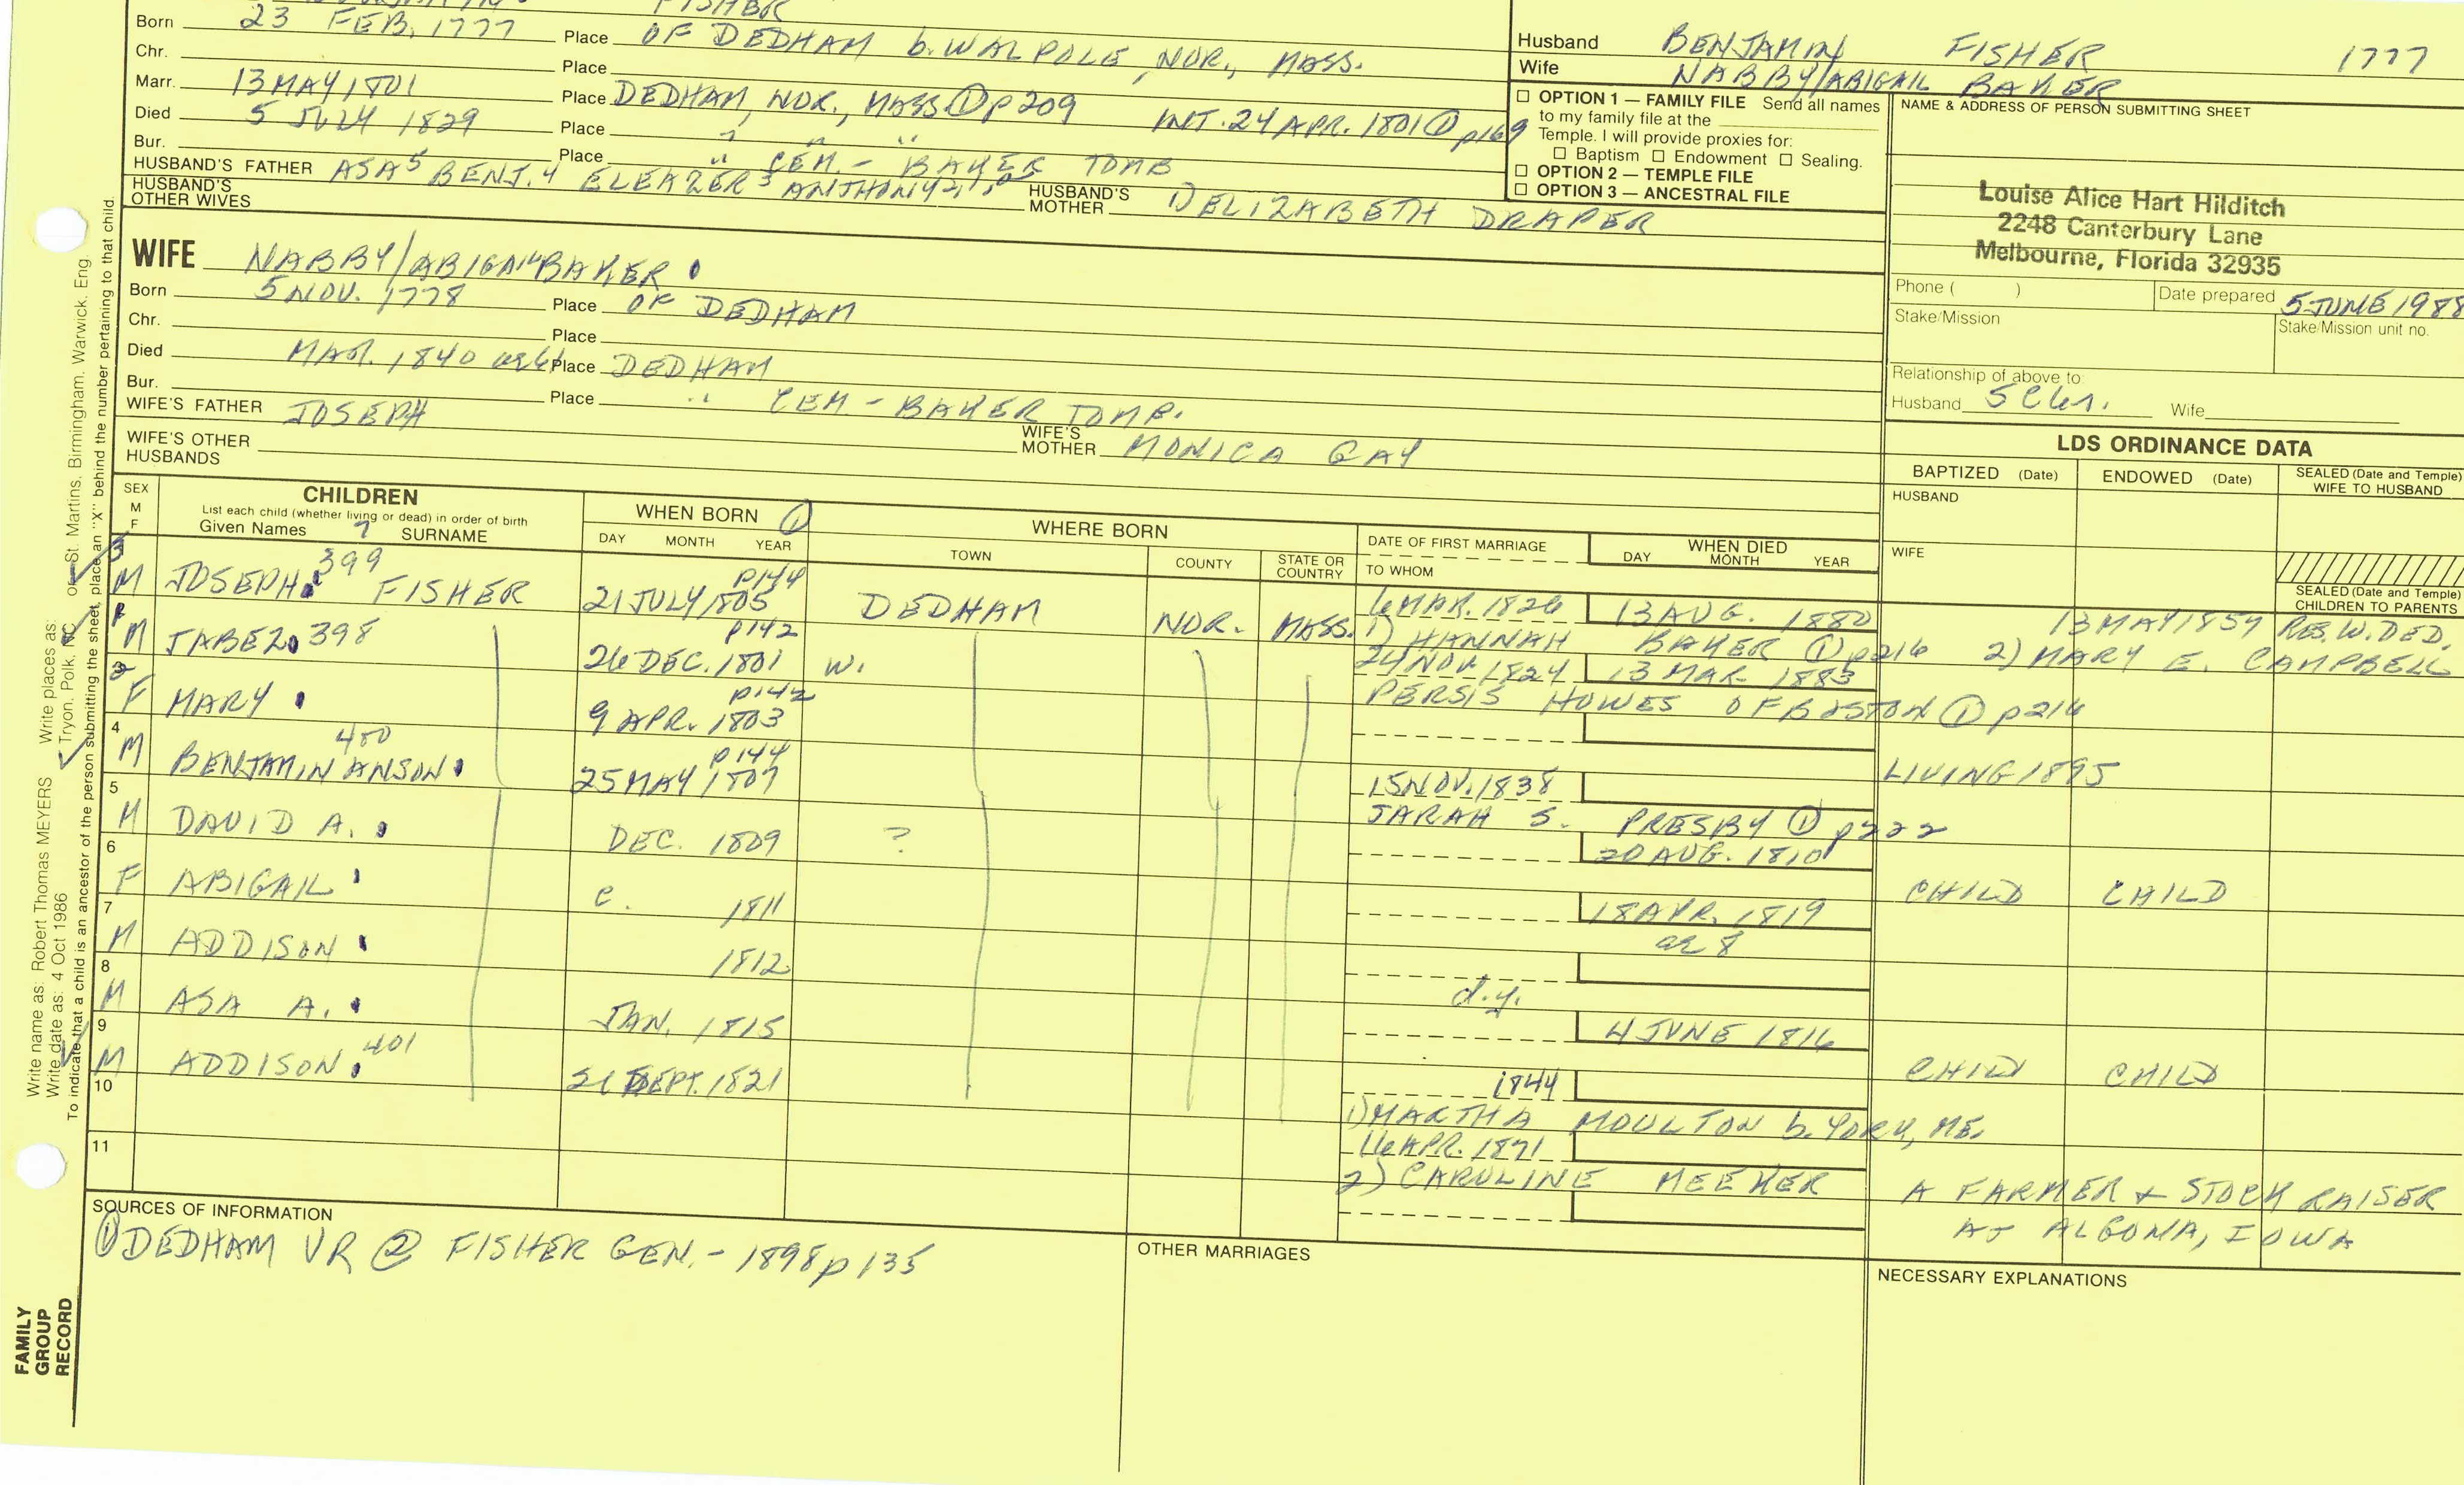 FISHER
Born 23 FEB. 1777 Place OF DEDHAM b. WALPOLE, NOR., MASS.
Chr. Place
Marr. 13 MAY 1801 Place DEDHAM, NOR., MASS. ① p209 INT. 24 APR. 1801 ① p169
Died 5 JULY 1829 Place " " "
Bur. Place " CEM. - BAKER TOMB
HUSBAND'S FATHER ASA5 BENJ.4 ELEAZER3 ANTHONY2,1 HUSBAND'S MOTHER 1) ELIZABETH DRAPER
HUSBAND'S OTHER WIVES
Husband BENJAMIN FISHER 1777
Wife NABBY/ABIGAIL BAKER
☐ OPTION 1 — FAMILY FILE Send all names
to my family file at the
Temple. I will provide proxies for:
☐ Baptism ☐ Endowment ☐ Sealing.
☐ OPTION 2 — TEMPLE FILE
☐ OPTION 3 — ANCESTRAL FILE
NAME & ADDRESS OF PERSON SUBMITTING SHEET
Louise Alice Hart Hilditch
2248 Canterbury Lane
Melbourne, Florida 32935
Phone ( ) Date prepared 5 JUNE 1988
Stake/Mission Stake/Mission unit no.
Relationship of above to:
Husband Wife
WIFE NABBY/ABIGAIL BAKER
Born 5 NOV. 1778 Place OF DEDHAM
Chr. Place
Died MAR. 1840 ae61 Place DEDHAM
Bur. Place " CEM - BAKER TOMB.
WIFE'S FATHER JOSEPH WIFE'S MOTHER MONICA GAY
WIFE'S OTHER HUSBANDS
LDS ORDINANCE DATA
BAPTIZED (Date) ENDOWED (Date) SEALED (Date and Temple) WIFE TO HUSBAND
HUSBAND
WIFE
SEALED (Date and Temple) CHILDREN TO PARENTS
SEX M F
CHILDREN
List each child (whether living or dead) in order of birth
Given Names 7 SURNAME
WHEN BORN ①
DAY MONTH YEAR
WHERE BORN
TOWN COUNTY STATE OR COUNTRY
DATE OF FIRST MARRIAGE
TO WHOM
WHEN DIED
DAY MONTH YEAR
3 M JOSEPH 399 FISHER 21 JULY 1805 p144 DEDHAM NOR. MASS. 6 MAR. 1826 13 AUG. 1880
1) HANNAH BAKER ① p216 13 MAY 1857 RES. W. DED.
2) MARY E. CAMPBELL
M JABEZ 398 26 DEC. 1801 p142 W. 24 NOV. 1824 13 MAR. 1883
PERSIS HOWES OF BOSTON ① p216
2 F MARY 9 APR. 1803 p142
4 M BENJAMIN ANSON 400 25 MAY 1807 p144 15 NOV. 1838 LIVING 1895
SARAH S. PRESBY ① p222
5 M DAVID A. DEC. 1809 ? 20 AUG. 1810
CHILD CHILD
6 F ABIGAIL c. 1811 18 APR. 1819
ae 8
7 M ADDISON 1812
d.y.
8 M ASA A. JAN. 1815 4 JUNE 1816
CHILD CHILD
9 M ADDISON 401 21 SEPT. 1821 1844
1) MARTHA MOULTON b. YORK, ME.
10
16 APR. 1871
2) CAROLINE MEEKER
11
A FARMER & STOCK RAISER
AT ALGONA, IOWA
SOURCES OF INFORMATION
① DEDHAM VR ② FISHER GEN. - 1898 p135
OTHER MARRIAGES
NECESSARY EXPLANATIONS
Write name as: Robert Thomas MEYERS Write places as: Tryon, Polk, NC or St. Martins, Birmingham, Warwick, Eng.
Write date as: 4 Oct 1986
To indicate that a child is an ancestor of the person submitting the sheet, place an "X" behind the number pertaining to that child.
FAMILY
GROUP
RECORD